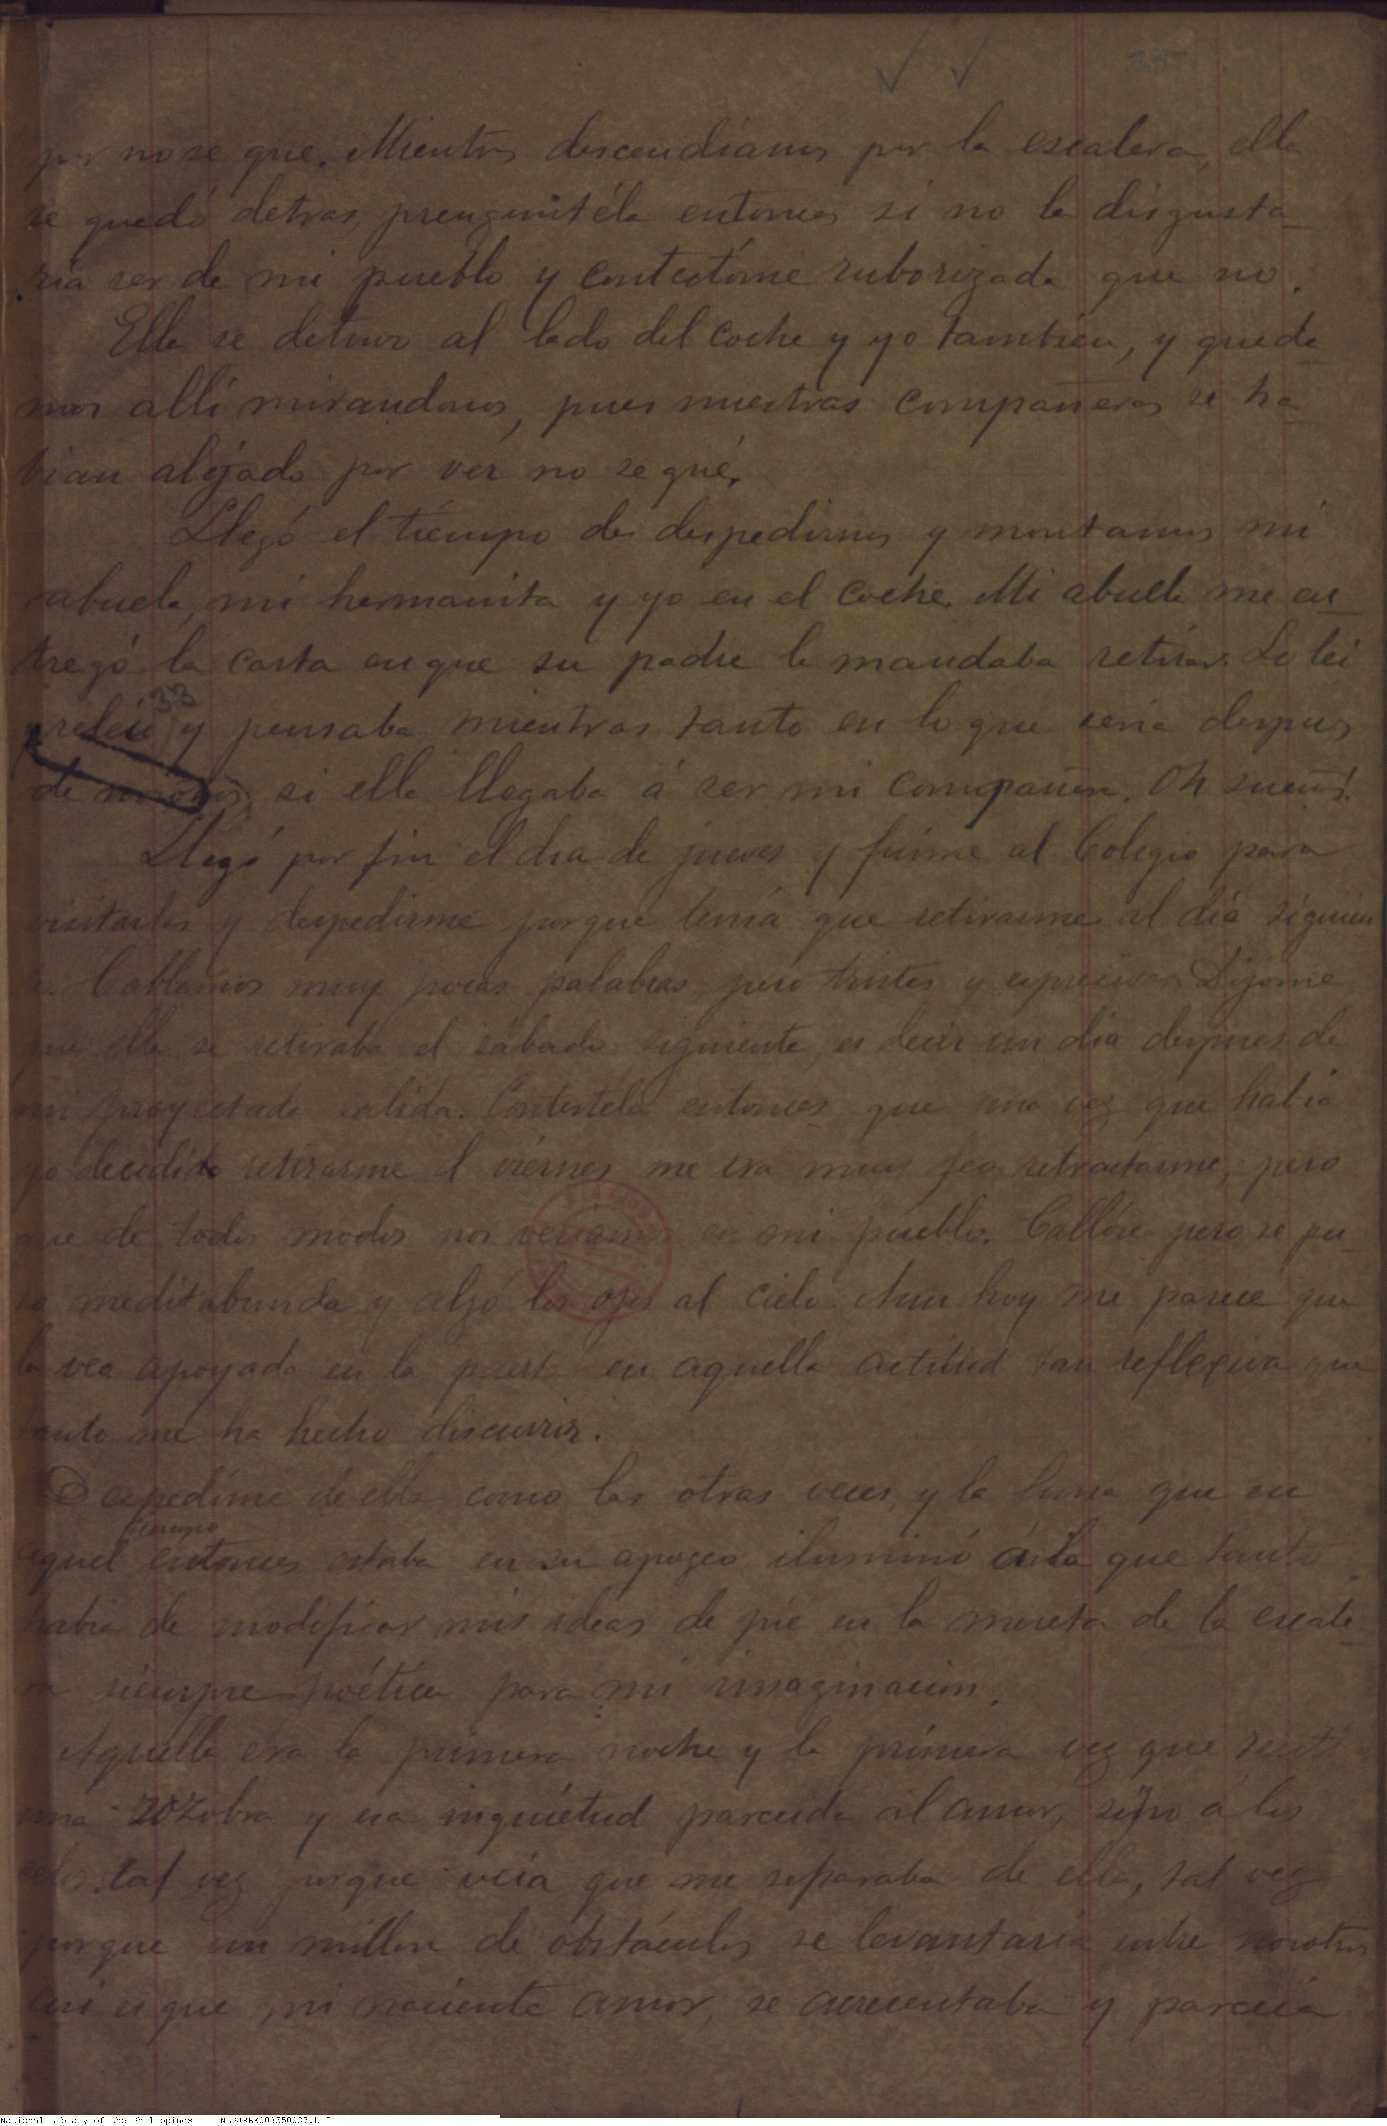 35
por no se que. Mientras descendiamos por la escalera, ella
se quedó detras preuguntéla entonces si no le disgusta-
ria ser de mi pueblo y contestóme ruborizada que no.
Ella se detuvo al lado del coche y yo tambien, y queda-
mos allí mirandonos, pues nuestras compañeras se ha-
bian alejado por ver no se qué.
Llegó el tiempo de despedirnos y montamos mi
abuela, mi hermanita y yo en el coche. Mi abuela me en-
tregó la carta en que su padre le mandaba retirar. Lo leí
y releí 33 y pensaba mientras tanto en lo que seria despues
de si ella llegaba á ser mi compañera. Oh sueños!
Llegó por fin el dia de jueves y fuime al Colegio para
visitarlas y despedirme porque tenía que retirarme al día siguien
te. Hablamos muy pocas palabras pero tristes y expresivas. Díjome
que ella se retiraba el sábado siguiente, es decir un día despues de
mi proyectada salida. Contestéla entonces que una vez que habia
yo decidido retirarme el viernes me era muy feo retractarme, pero
que de todos modos nos veriamos en mi pueblo. Callóse pero se pu-
so meditabunda y alzó los ojos al cielo. Aun hoy me parece que
la veo apoyada en la puerta en aquella actitud tan reflexiva que
tanto me ha hecho discurrir.
Despedíme de ella como las otras veces, y la luna que en
tiempo
aquel entonces estaba en su apogeo iluminó á la que tanto
habia de modificar mis ideas de pie en la meseta de la escale-
ra siempre poética para mi imaginacion.
Aquella era la primera noche y la primera vez que sentí
una zozobra y una inquietud parecida al amor, sino á los
celos, tal vez porque veía que me separaba de ella, tal vez
porque un millon de obstáculos se levantaria entre nosotros
asi es que mi naciente amor, se acrecentaba y parecia
National Library of the Philippines